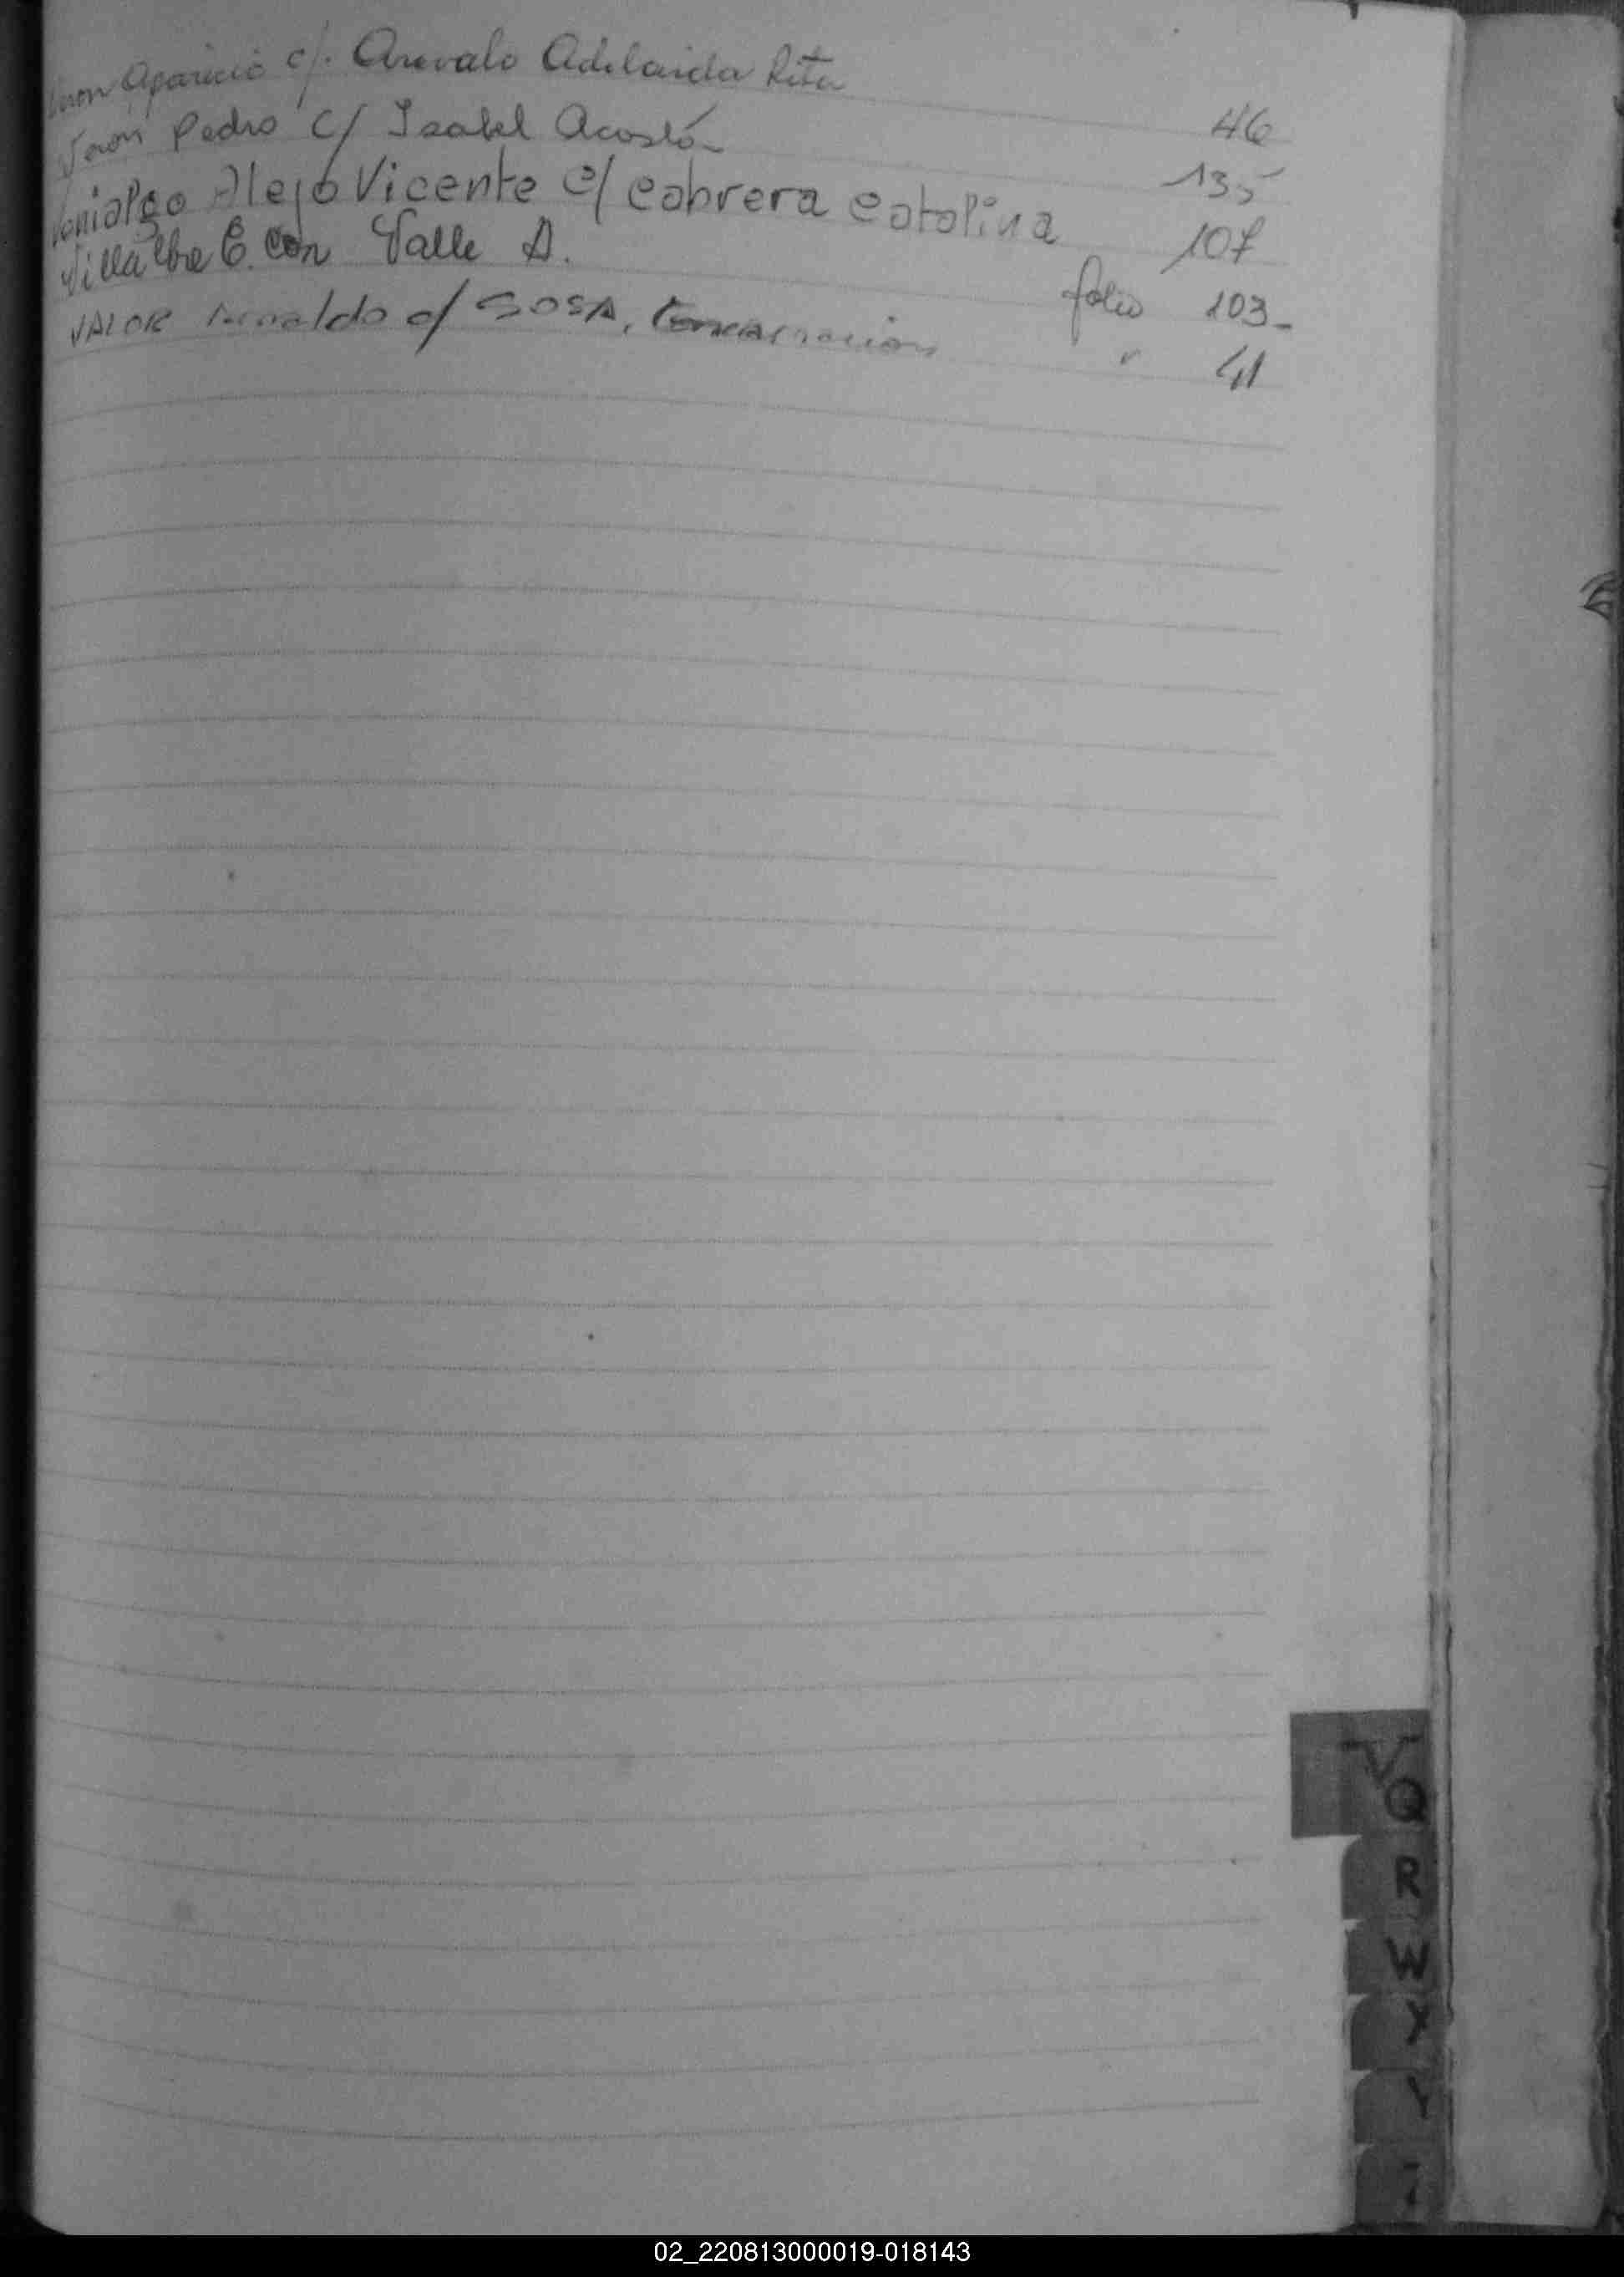 Veron Aparicio c/. Arevalo Adelaida Rita 46
Veron Pedro c/ Isabel Acosta 135
Alejo Vicente c/ Cabrera Catalina 107
Villalba E. con Valle A. folio 103-
VALOR Arnaldo c/ SOSA, Encarnacion " 41
V
Q
R
W
X
Y
Z
02_220813000019-018143